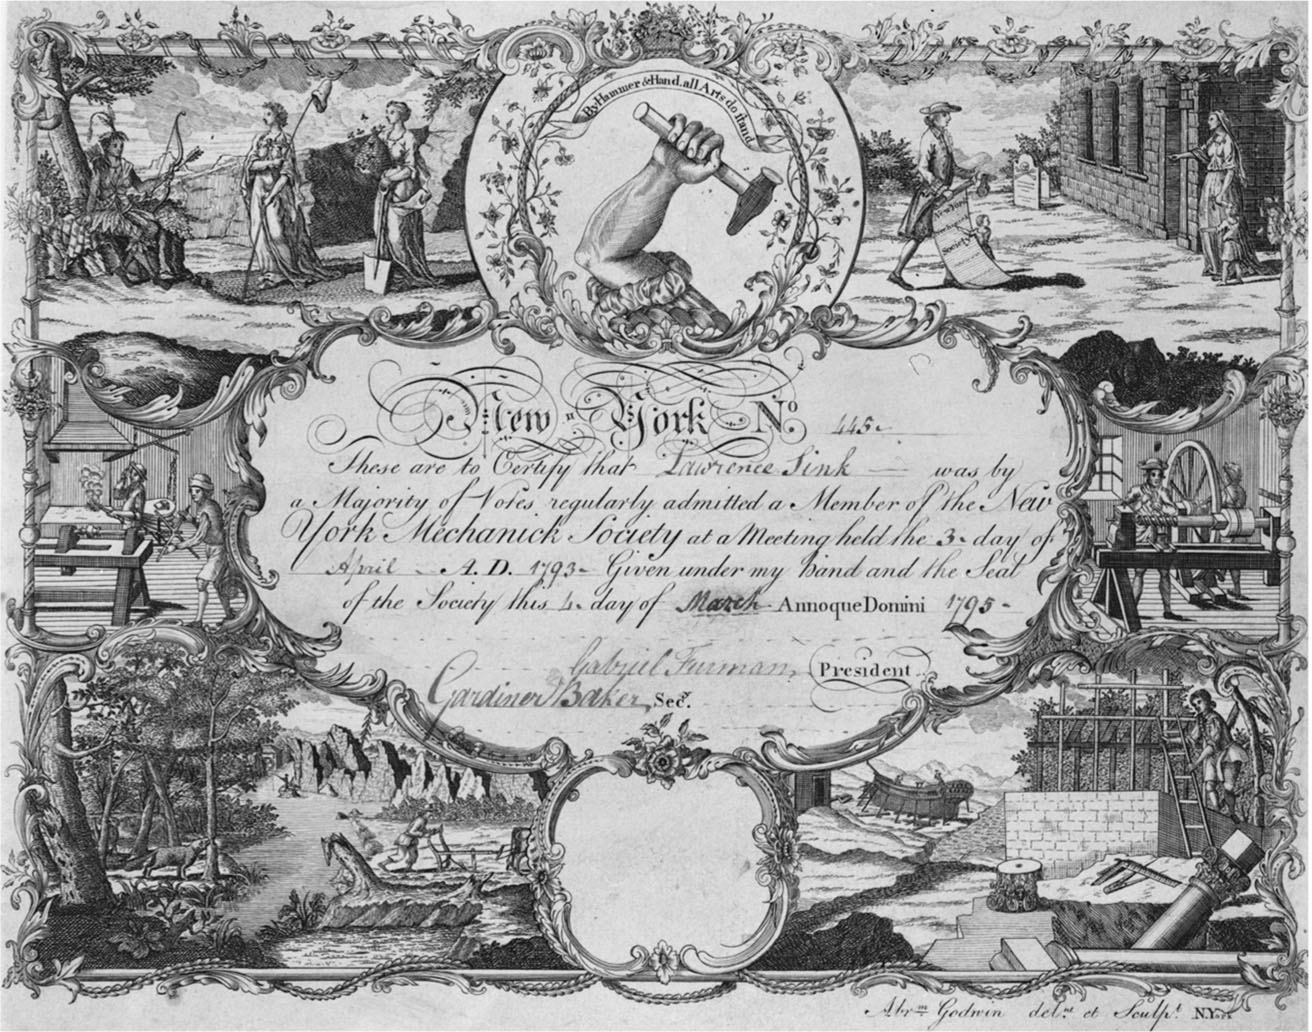 By Hammer & Hand all Arts do stand
New York
Society
New York No. 445
These are to Certify that Lawrence Sink was by
a Majority of Votes regularly admitted a Member of the New
York Mechanick Society at a Meeting held the 3 day of
April A.D. 1793 Given under my hand and the Seal
of the Society this 4 day of March Annoque Domini 1795
Gabriel Furman, President
Gardiner Baker, Secy.
Abrm Godwin delnt et Sculpt N. York